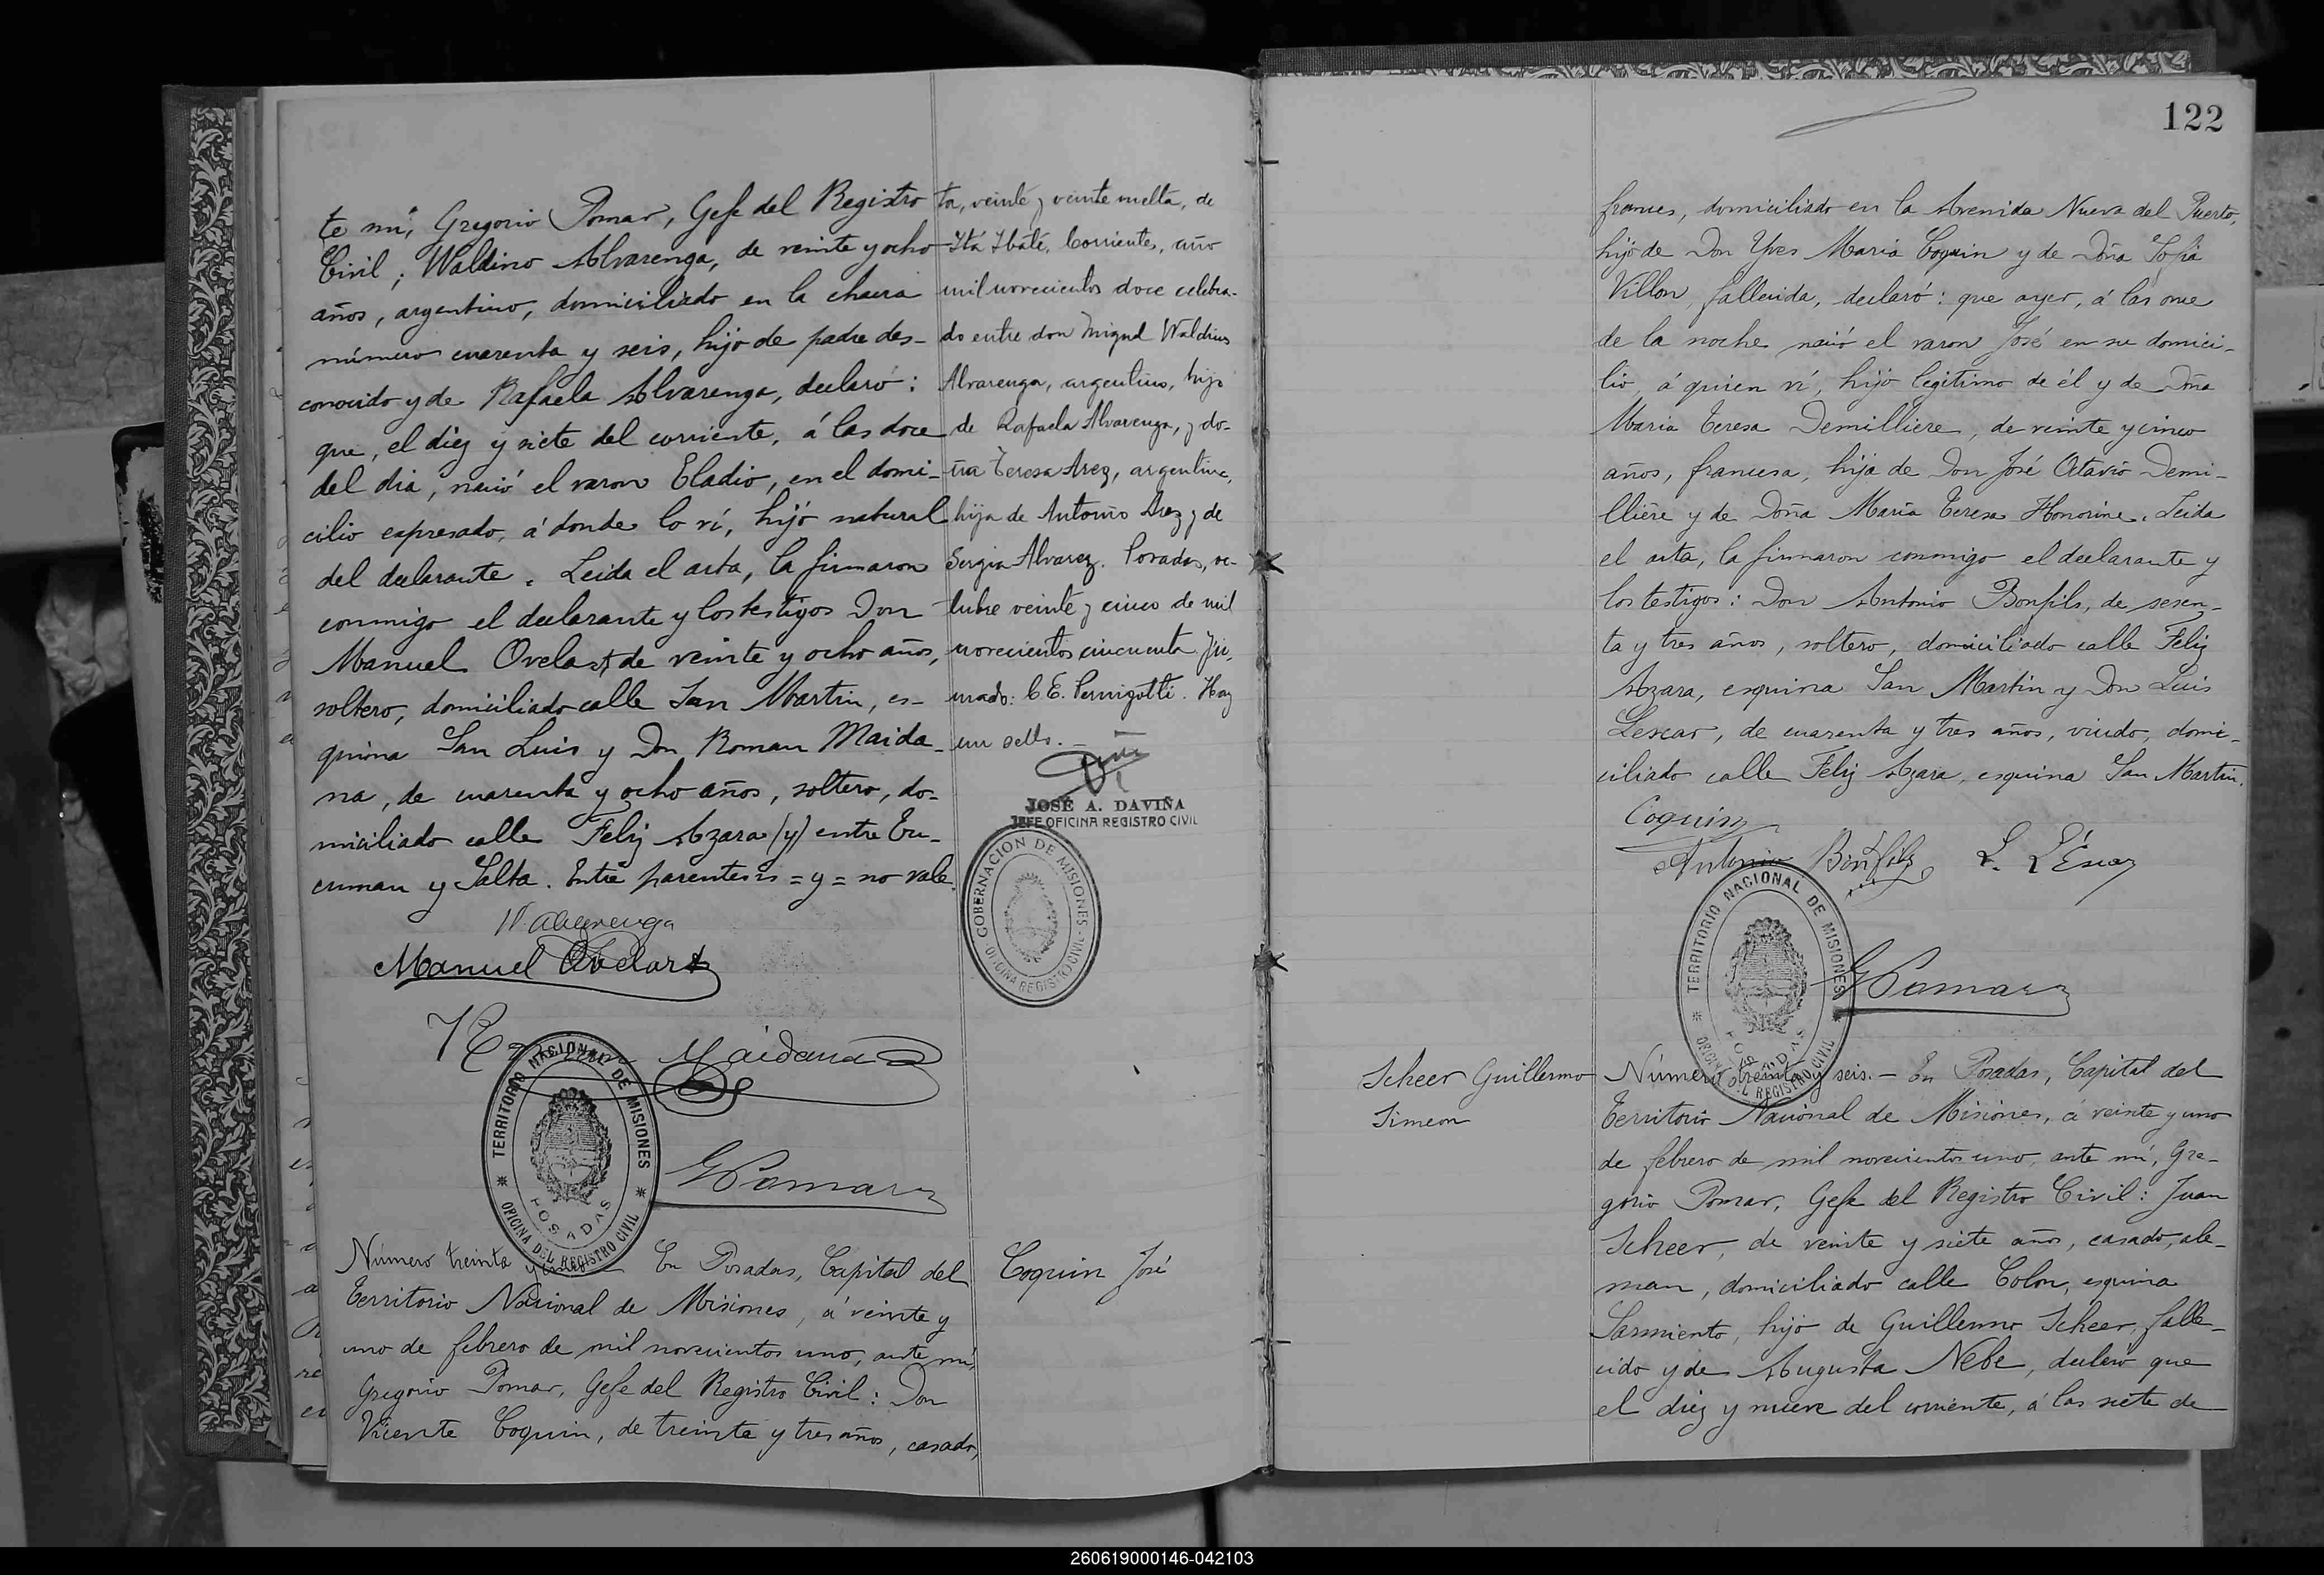 te mí, Gregorio Pomar, Gefe del Registro
Civil; Waldino Alvarenga, de veinte y ocho
años, argentino, domiciliado en la chacra
número cuarenta y seis, hijo de padre des-
conocido y de Rafaela Alvarenga, declaró:
que, el diez y siete del corriente, á las doce
del dia, nació el varon Eladio, en el domi-
cilio expresado, á donde lo ví, hijo natural
del declarante. Leida el acta, la firmaron
conmigo el declarante y los testigos Don
Manuel Ovelar, de veinte y ocho años,
soltero, domiciliado calle San Martin, es-
quina San Luis y Don Roman Maida-
na, de cuarenta y ocho años, soltero, do-
miciliado calle Feliz Azara (y) entre Tu-
cuman y Salta. Entre parentesis = y = no vale.
W. Alvarenga
Manuel Ovelar
Roman Maidana
TERRITORIO NACIONAL DE MISIONES
POSADAS
OFICINA DEL REGISTRO CIVIL
G Pomar
Número treinta y En Posadas, Capital del
Territorio Nacional de Misiones, á veinte y
uno de febrero de mil novecientos uno, ante mí,
Gregorio Pomar, Gefe del Registro Civil: Don
Vicente Coquin, de treinta y tres años, casado,
ta, veinte y veinte vuelta, de
Itá Ibaté, Corrientes, año
mil novecientos doce celebra-
do entre don Miguel Waldino
Alvarenga, argentino, hijo
de Rafaela Alvarenga, y do-
ña Teresa Arez, argentina,
hija de Antonio Arez y de
Sergia Alvarez. Posadas, oc-
tubre veinte y cinco de mil
novecientos cincuenta. Fir-
mado: C. E. Pernigotti. Hay
un sello.
JOSÉ A. DAVIÑA
JEFE OFICINA REGISTRO CIVIL
GOBERNACION DE MISIONES
OFICINA REGISTRO CIVIL
Coquin José
122
frances, domiciliado en la Avenida Nueva del Puerto,
hijo de Don Yves Maria Coquin y de Doña Sofia
Villon, fallecida, declaró: que ayer, á las once
de la noche nació el varon José en su domici-
lio, á quien ví, hijo legitimo de él y de Doña
Maria Teresa Demilliere, de veinte y cinco
años, francesa, hija de Don José Octavio Demi-
lliere y de Doña Maria Teresa Honorine. Leida
el acta, la firmaron conmigo el declarante y
los testigos: Don Antonio Bonfils, de sesen-
ta y tres años, soltero, domiciliado calle Feliz
Azara, esquina San Martin y Don Luis
Lescar, de cuarenta y tres años, viudo, domi-
ciliado calle Feliz Azara, esquina San Martin.
Coquin
Antonio Bonfils L. Léscar
TERRITORIO NACIONAL DE MISIONES
POSADAS
OFICINA DEL REGISTRO CIVIL
G Pomar
Scheer Guillermo
Simeon
Número treinta y seis.- En Posadas, Capital del
Territorio Nacional de Misiones, á veinte y uno
de febrero de mil novecientos uno, ante mí, Gre-
gorio Pomar, Gefe del Registro Civil: Juan
Scheer, de veinte y siete años, casado, ale-
man, domiciliado calle Colon, esquina
Sarmiento, hijo de Guillermo Scheer, falle-
cido y de Augusta Nebe, declaro que
el diez y nueve del corriente, á las siete de
260619000146-042103